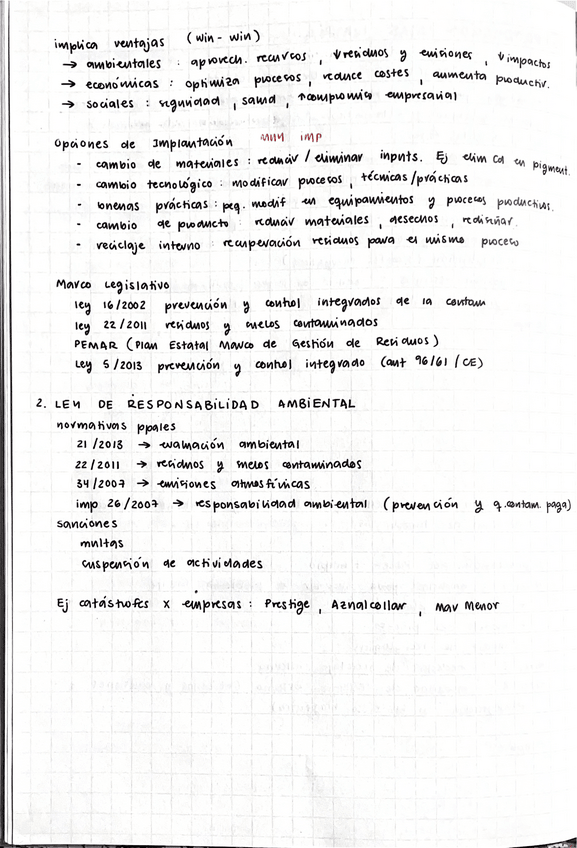 implica ventajas (win-win)
→ ambientales : aprovech. recursos , ↓residuos y emisiones , ↓impactos
→ económicas : optimiza procesos , reduce costes , aumenta productiv.
→ sociales : seguridad , salud , ↑compromiso empresarial
Opciones de Implantación MUY IMP
- cambio de materiales : reducir / eliminar inputs. Ej elim Cd en pigment.
- cambio tecnológico : modificar procesos , técnicas /prácticas
- buenas prácticas : peq. modif en equipamientos y procesos productivos.
- cambio de producto : reducir materiales , desechos , rediseñar.
- reciclaje interno : recuperación residuos para el mismo proceso
Marco Legislativo
ley 16/2002 prevención y control integrados de la contam
ley 22/2011 residuos y suelos contaminados
PEMAR (Plan Estatal Marco de Gestión de Residuos)
Ley 5/2013 prevención y control integrado (ant 96/61/CE)
2. LEY DE RESPONSABILIDAD AMBIENTAL
normativas ppales
21/2013 → evaluación ambiental
22/2011 → residuos y suelos contaminados
34/2007 → emisiones atmosféricas
imp 26/2007 → responsabilidad ambiental (prevención y q.contam. paga)
sanciones
multas
suspensión de actividades
Ej catástrofes x empresas : Prestige , Aznalcollar , Mar Menor